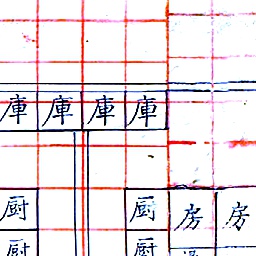 庫庫庫庫
厨 厨 房 房
厨 厨